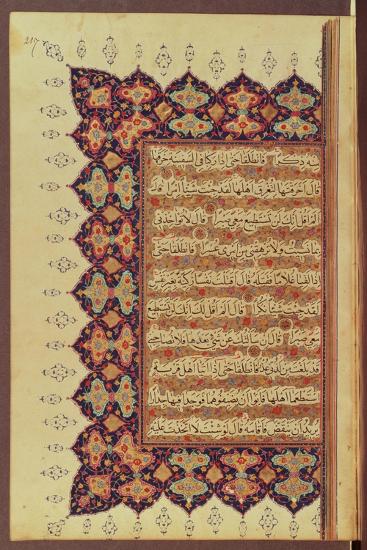 217
منه ذكرا فانطلقا حتى اذا ركبا فى السفينة خرقها
قال اخرقتها لتغرق اهلها لقد جئت شيئا امرا قال
الم اقل انك لن تستطيع معى صبرا قال لا تؤاخذنى
بما نسيت ولا ترهقنى من امرى عسرا فانطلقا حتى
اذا لقيا غلاما فقتله قال اقتلت نفسا زكية بغير نفس
لقد جئت شيئا نكرا قال الم اقل لك انك لن تستطيع
معى صبرا قال ان سالتك عن شىء بعدها فلا تصاحبنى
قد بلغت من لدنى عذرا فانطلقا حتى اذا اتيا اهل قرية
استطعما اهلها فابوا ان يضيفوهما فوجدا فيها جدارا
يريد ان ينقض فاقامه قال لو شئت لاتخذت عليه